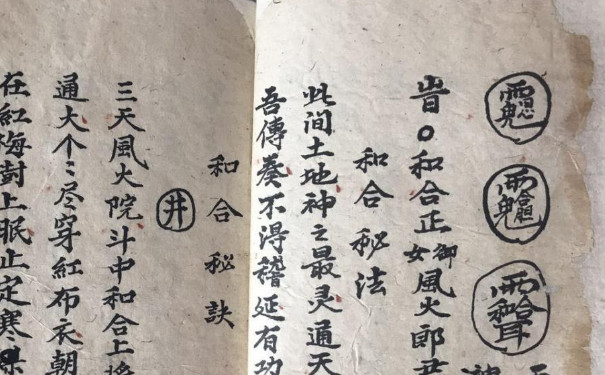 旹〇和合正御女風火郎
和合秘法
此间土地神之最灵通天
吾傳奏不得稽延有功
和合秘訣
井
三天風火院斗中和合上将
通大个〻尽穿紅布衣朝
在紅梅封上眠止定寒